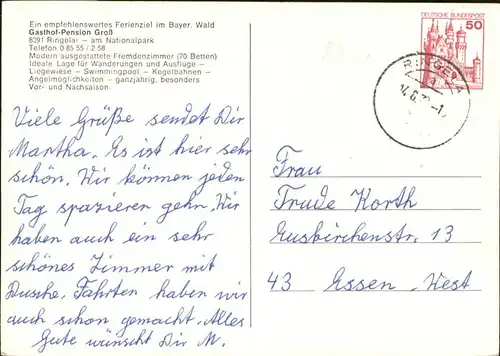 Ein empfehlenswertes Ferienziel im Bayer. Wald
Gasthof-Pension Groß
8391 Ringelai – am Nationalpark
Telefon 0 85 55 / 2 58
Modern ausgestattete Fremdenzimmer (70 Betten)
Ideale Lage für Wanderungen und Ausflüge –
Liegewiese – Swimmingpool – Kegelbahnen –
Angelmöglichkeiten – ganzjährig, besonders
Vor- und Nachsaison.
DEUTSCHE BUNDESPOST
50
RINGELAI
Viele Grüße sendet Dir
Martha. Es ist hier sehr
schön. Wir können jeden
Tag spazieren gehn. Wir
haben auch ein sehr
schönes Zimmer mit
Dusche. Fahrten haben wir
auch schon gemacht. Alles
Gute wünscht Dir M.
Frau
Trude Korth
Euskirchenstr. 13
43 Essen-West